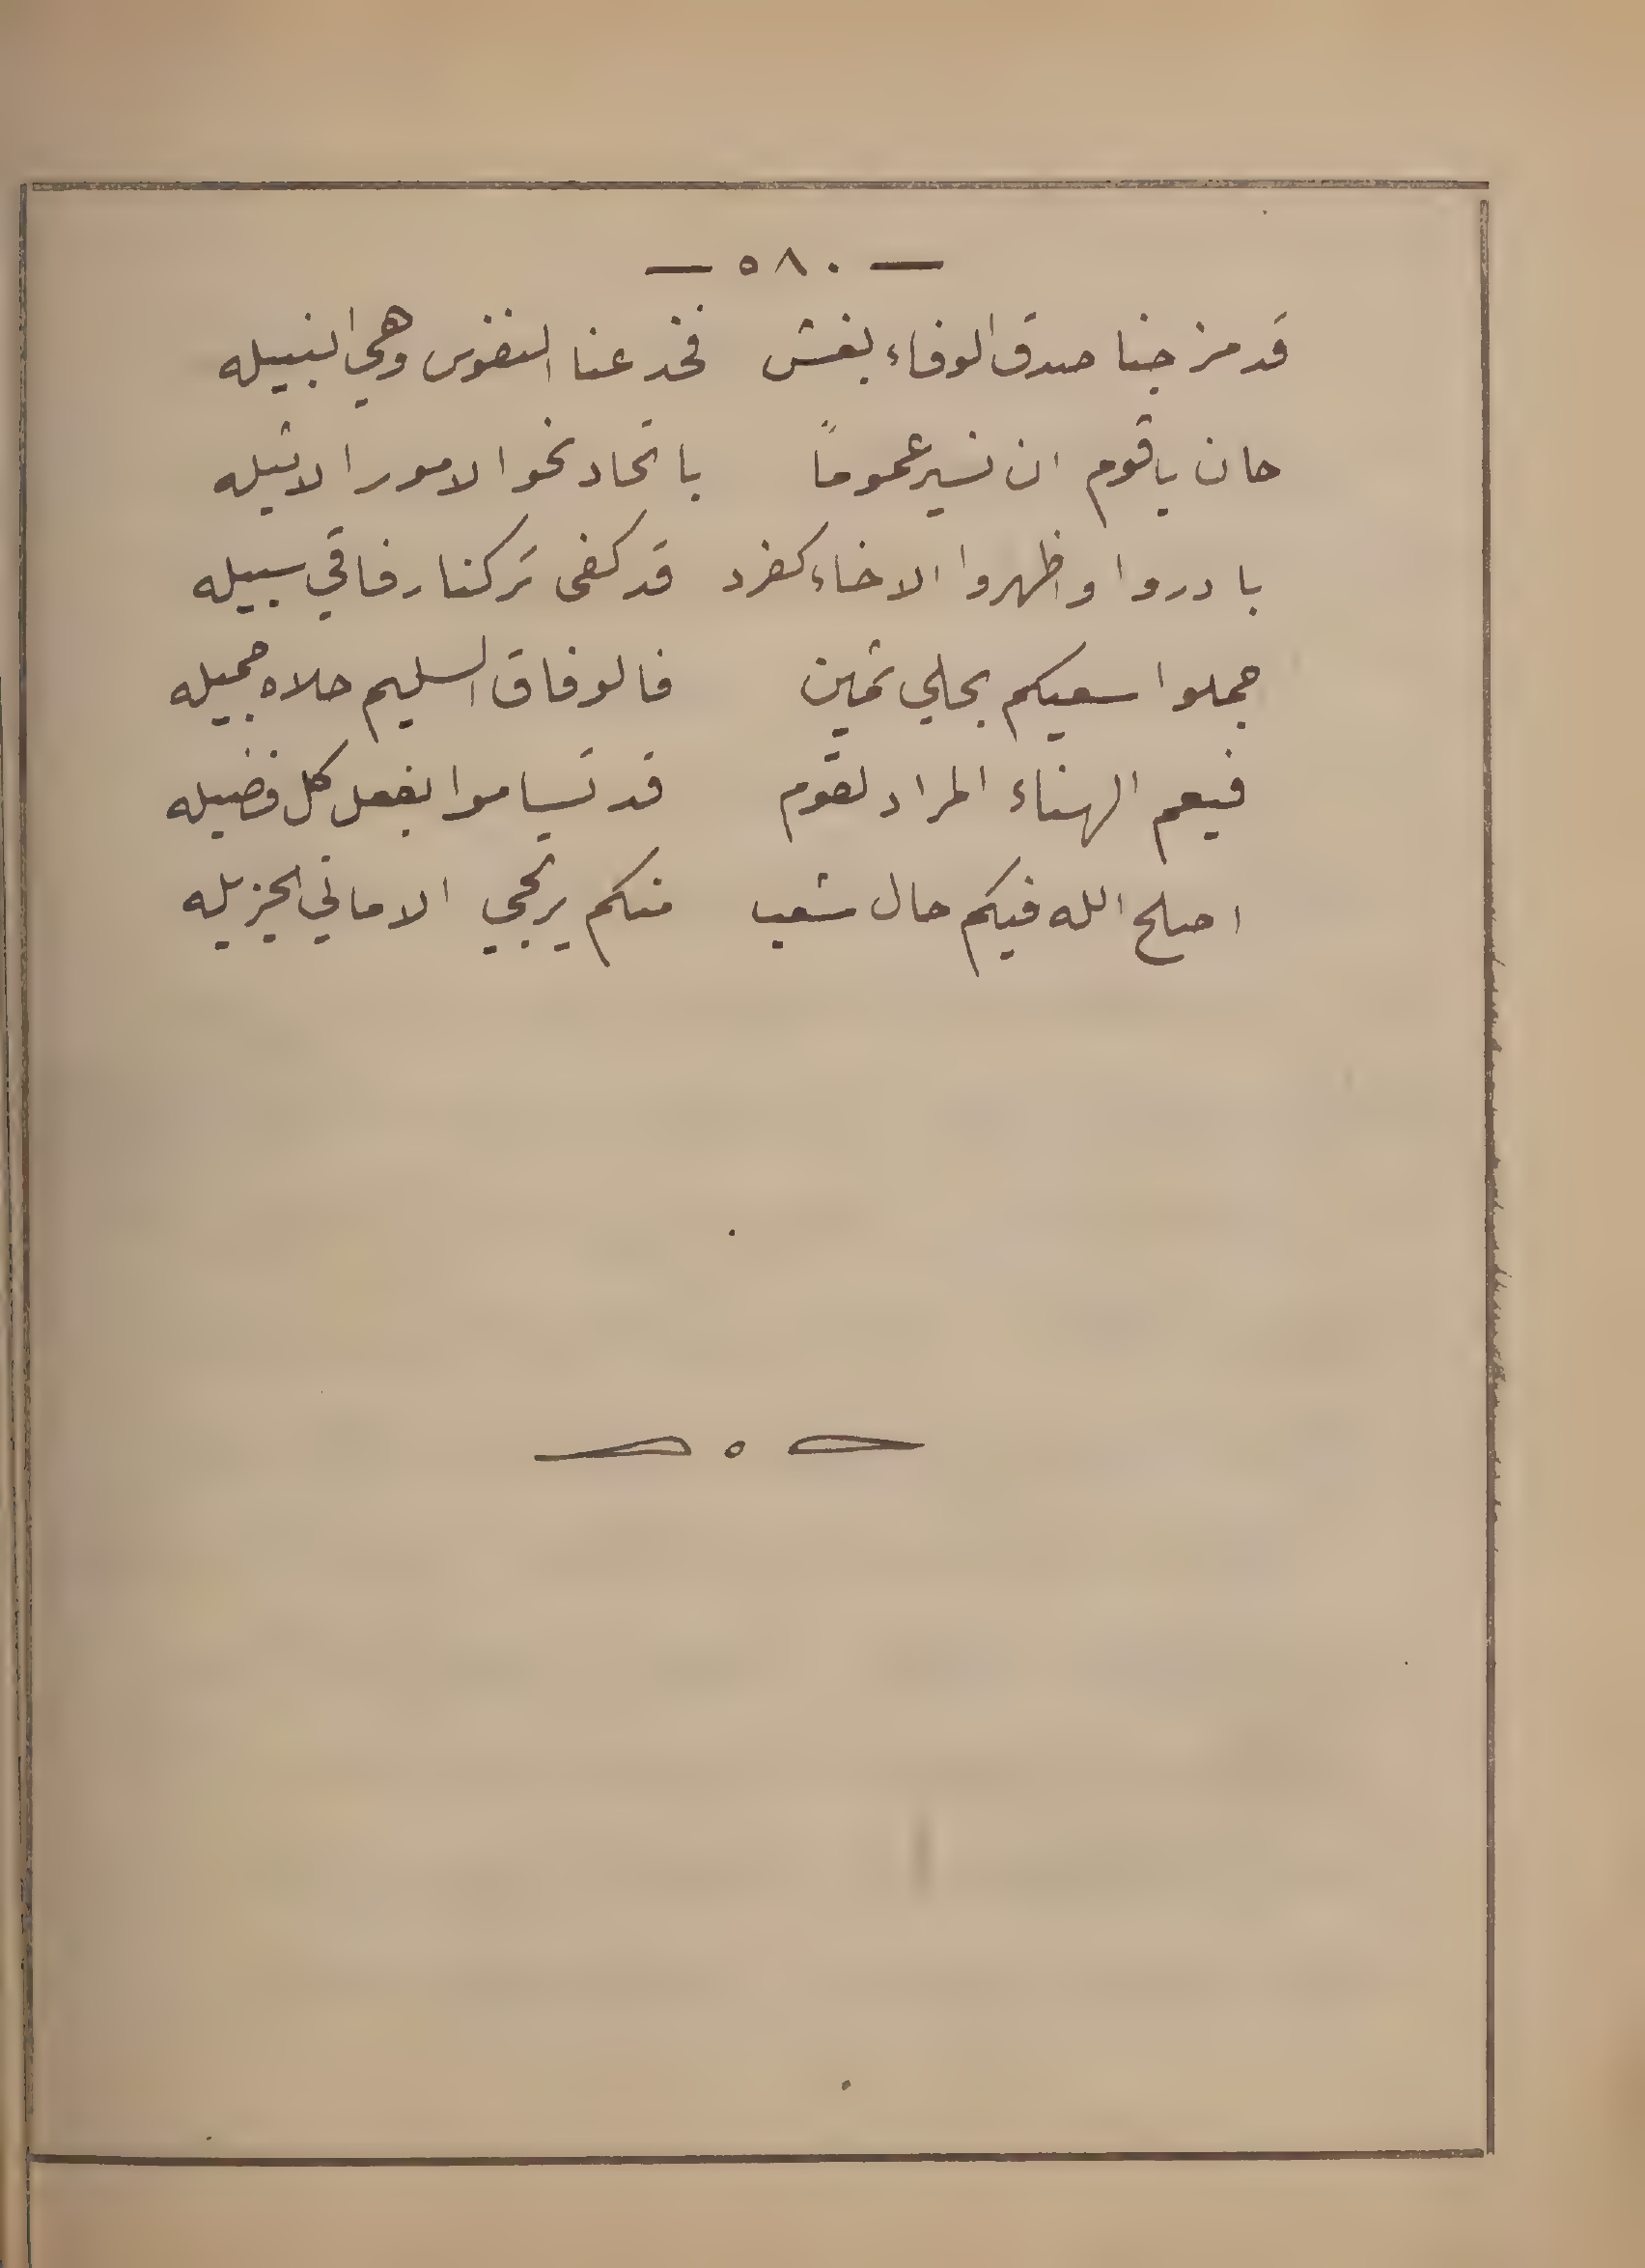 — ٥٨٠ —
قد مزجنا صدق الوفاء بغش فخدعنا النفوس وهي النبيله
حان ياقوم ان نسير عموماً باتحاد نحو الامور الاثيله
بادروا واظهروا الاخاء كفرد قد كفى تركنا رفاقي سبيله
جملوا سعيكم بحلي ثمين فالوفاق السليم حلاه جميله
فيعم الهناء المراد لقوم قد تساموا بفعل كل فضيله
اصلح الله فيكم حال شعب منكم يرتجي الاماني الجزيله